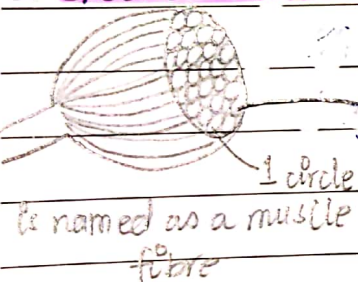 1 circle
is named as a muscle
fibre